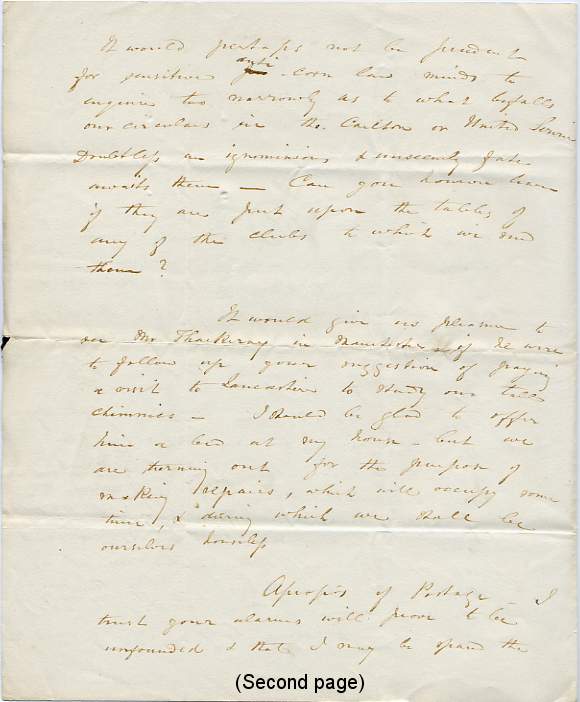 It would perhaps not be prudent
for sensitive anti-corn law minds to
enquire too narrowly as to what befalls
our circulars in the Carlton or United Service
Doubtless an ignominious & unseemly fate
awaits them — Can you however learn
if they are put upon the tables of
any of the clubs to which we send
them?
It would give us pleasure to
see Mr Thackeray in Manchester if he were
to follow up your suggestion of paying
a visit to Lancashire to study our tall
chimnies — I should be glad to offer
him a bed at my house — but we
are turning out for the purpose of
making repairs, which will occupy some
time, & during which we shall be
ourselves houseless
Apropos of Postage — I
trust your alarms will prove to be
unfounded & that I may be spared the
(Second page)